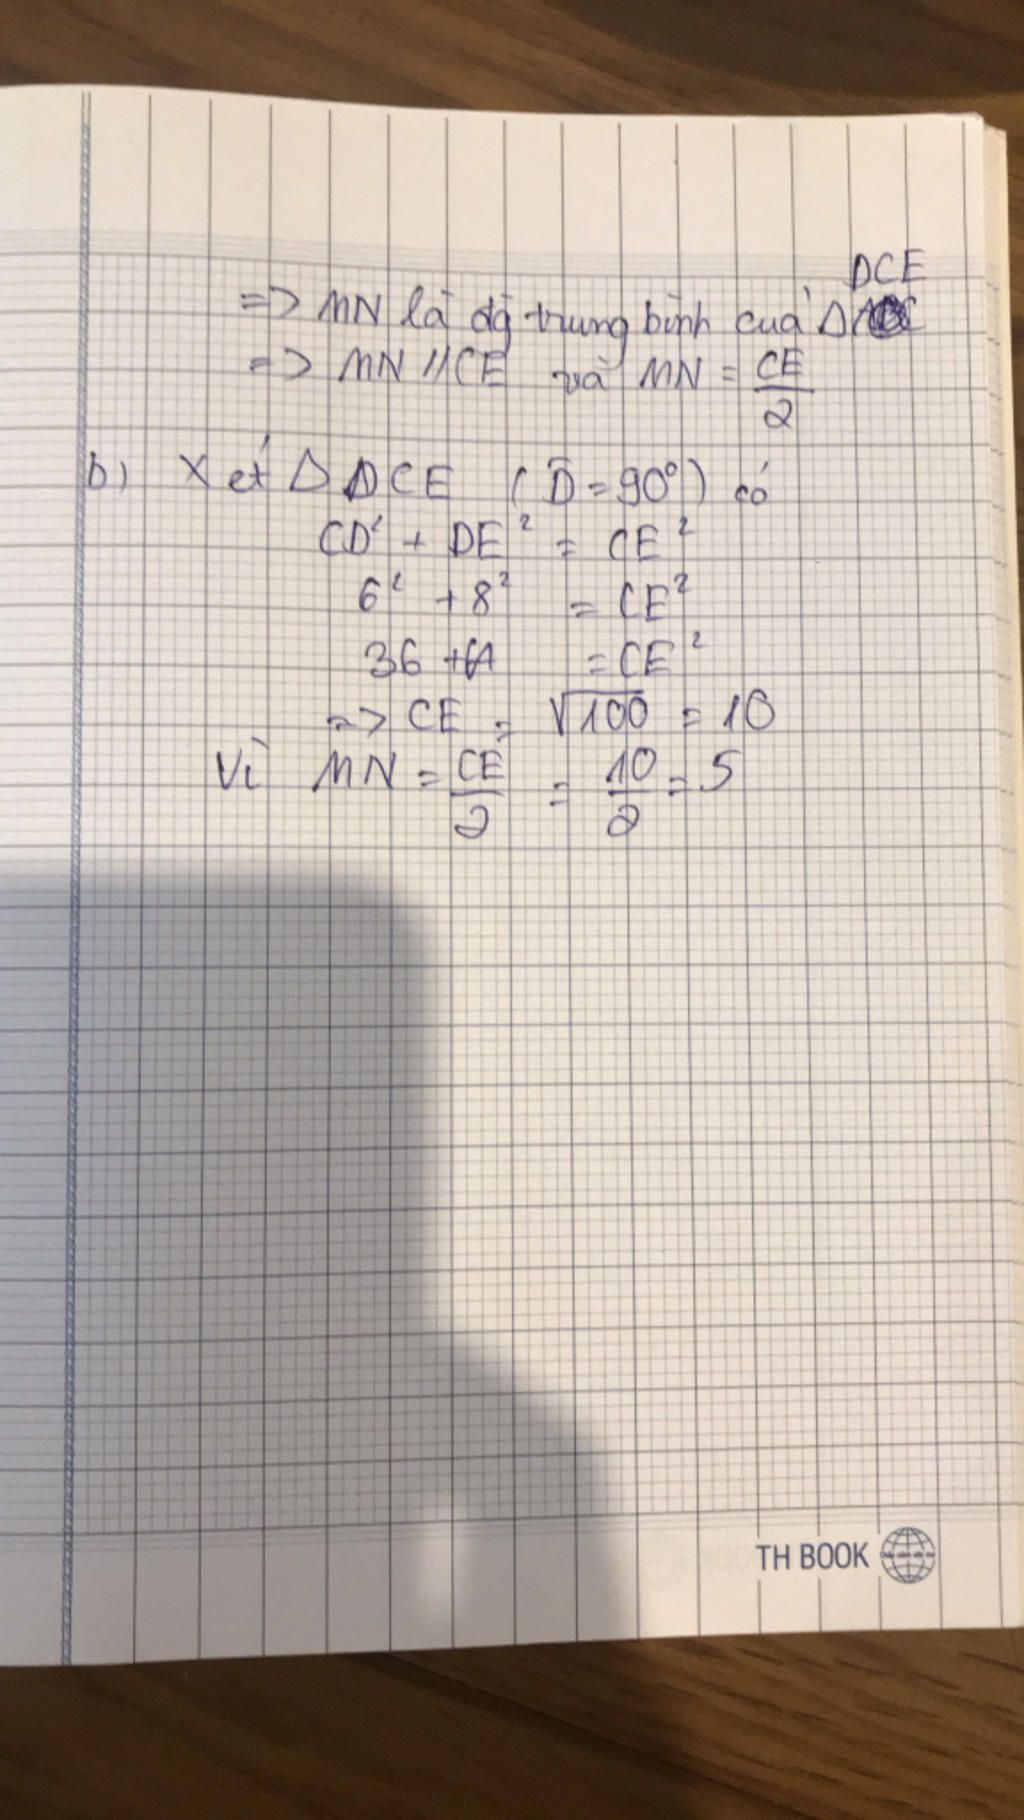 DCE
=> MN là đg trung bình của Δ
=> MN // CE và MN = CE/2
b) Xét Δ DCE (D̂ = 90°) có
CD² + DE² = CE²
6² + 8² = CE²
36 + 64 = CE²
=> CE = √100 = 10
Vì MN = CE/2 = 10/2 = 5
TH BOOK